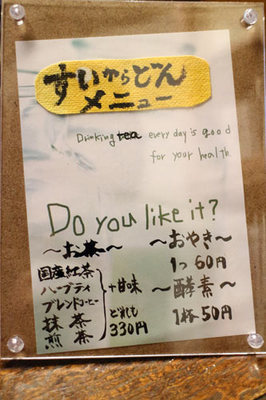 すいからどん
メニュー
Drinking tea every day is good
for your health
Do you like it?
～お茶～
国産紅茶
ハーブティ
ブレンドコーヒー
抹茶
煎茶
+甘味
どれも
330円
～おやき～
1つ60円
～酵素～
1杯50円